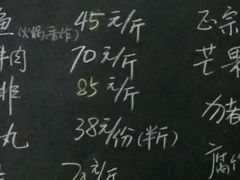 鱼(火焗/香炸) 45元/斤
牛肉 70元/斤
排 85元/斤
丸 38元/份(半斤)
元/斤
正宗
芒果
力者
腐